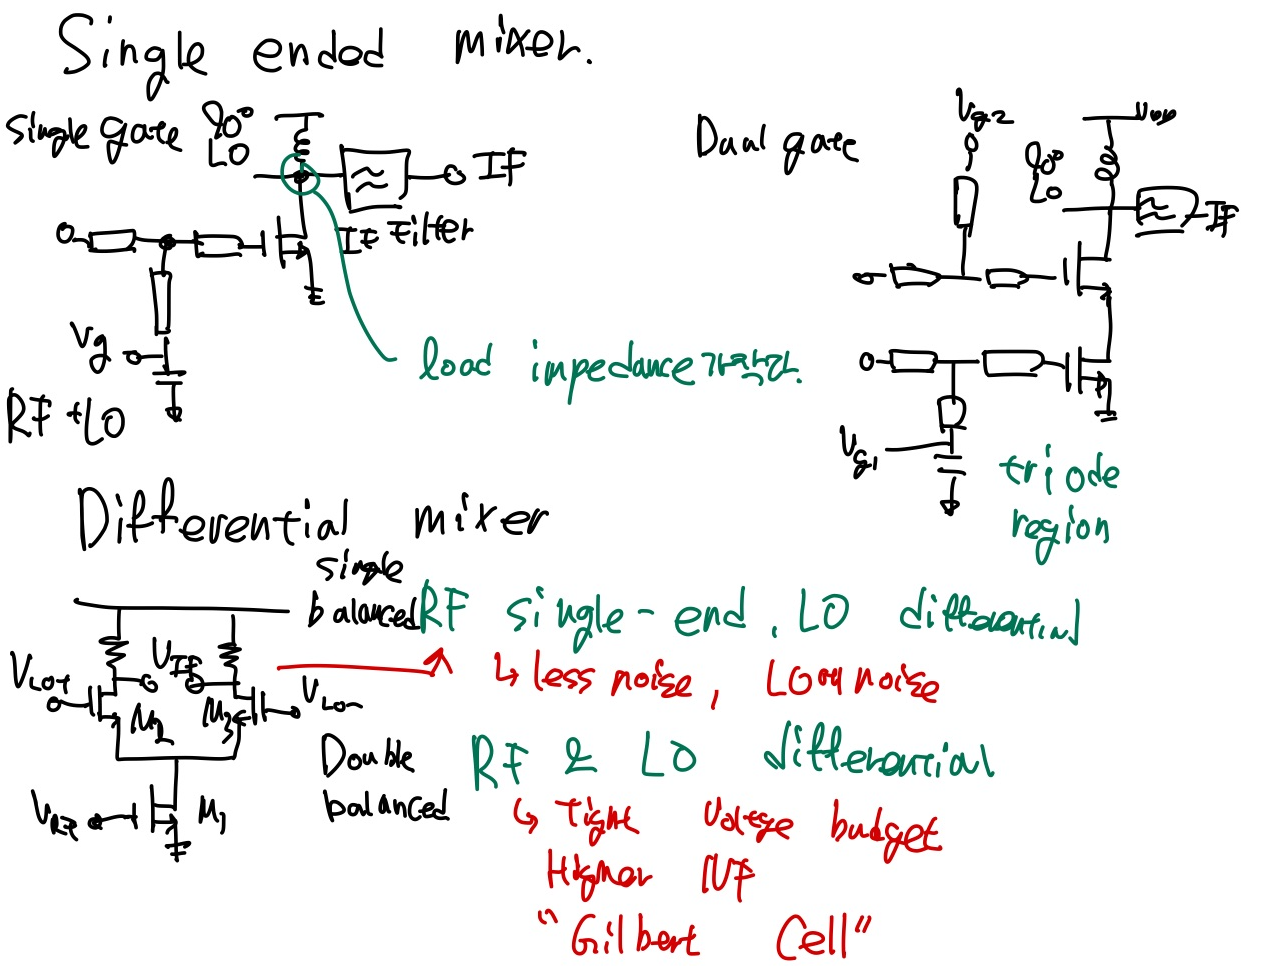 Single ended mixer.
single gate
90°
LO
IF
IF Filter
Vg
RF + LO
load impedance
Dual gate
Vg2
VDD
90°
LO
IF
Vg1
triode
region
Differential mixer
single
balanced
RF single-end, LO differential
↳ less noise, LO noise
VLO+
VIF
VLO-
M2
M3
VRF
M1
Double
balanced
RF & LO differential
↳ Tight Voltage budget
Higher NF
"Gilbert Cell"